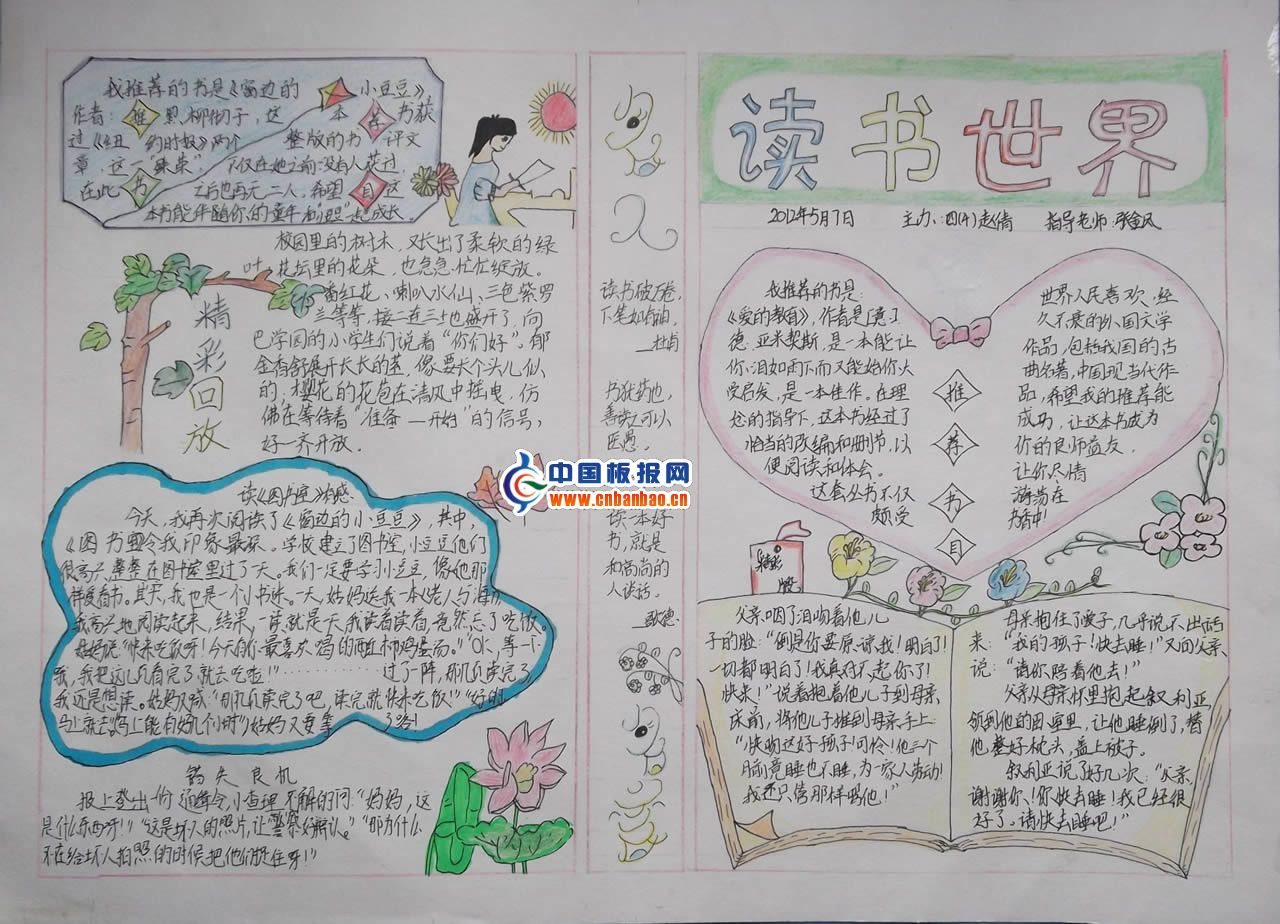 我推荐的书是《窗边的小豆豆》
作者: 黑柳彻子,这本书获
过《纽约时报》两个整版的书评文
章,这一"殊荣",不仅在她之前没有人获过,
在此之后也再无二人,希望这
本书能伴随你的童年和"照"起成长
推荐书目
校园里的树木,又长出了柔软的绿
叶,花坛里的花朵,也急急忙忙绽放。
番红花、喇叭水仙、三色紫罗
兰等等,接二连三地盛开了,向
巴学园的小学生们说着"你们好"。郁
金香舒展开长长的茎,像要长个头儿似
的,樱花的花苞在清风中摇曳,仿
佛在等待着"准备——开始"的信号,
好一齐开放。
精彩回放
读《图书室》有感
今天,我再次阅读了《窗边的小豆豆》,其中,
《图书室》令我印象最深。学校建立了图书室,小豆豆他们
很高兴,整整在图书室里过了一天。我们一定要学习小豆豆,像她那
样爱看书。其实,我也是一个小书迷。一天,姑妈送我一本《老人与海》,
我高兴地阅读起来,结果,一读就是一天,我读着读着,竟然忘了吃饭。
姑妈说"快来吃饭呀!今天有你最喜欢喝的西红柿鸡蛋汤。""OK,等一下
我,我把这几页看完了就去吃啦!"…………过了一阵,那几页读完了,
我还是想读。姑妈又喊"那几页读完了吧,读完就快来吃饭!""好的
马上就去"
姑妈又要等
了哈!
错失良机
报上登出一份通缉令,小查理不解的问:"妈妈,这
是什么东西呀!""这是坏人的照片,让警察好辨认。""那为什么
不在给坏人拍照的时候把他们抓住呀!"
读书破万卷,
下笔如有神。
——杜甫
书犹药也,
善读之可以
医愚。
读一本好
书,就是
和高尚的
人谈话。
——歌德
中国板报网
www.cnbanbao.cn
读书世界
2012年5月7日 主力:四(4)赵倩 指导老师:张金凤
我推荐的书是:
《爱的教育》,作者是[意]
德·亚米契斯,是一本能让
你泪如雨下而又能给你大
受启发,是一本佳作。在理
念的指导下,这本书经过了
恰当的改编和删节,以
便阅读和体会。
这套丛书不仅
颇受
世界人民喜欢,经
久不衰的外国文学
作品,包括我国的古
典名著,中国现当代作
品,希望我的推荐能
成功,让这本书成为
你的良师益友,
让你尽情
游荡在
书香中!
推荐书目
精彩片段
父亲咽了泪吻着他儿
子的脸:"倒是你要原谅我!明白了!
一切都明白了!我真对不起你了!
快来!"说着抱着他儿子到母亲
床前,将他儿子推到母亲手上:
"快吻这好孩子!可怜!他三个
月来竟睡也不睡,为一家人劳动!
我还只管那样骂他!"
母亲抱住了爱子,几乎说不出话
来:"我的孩子!快去睡!"又向父亲
说:"请你陪着他去!"
父亲从母亲怀里抱起叙利亚,
领到他的卧室里,让他睡倒了,替
他整好枕头,盖上被子。
叙利亚说了好几次:"父亲,
谢谢你!你快去睡!我已经很
好了。请快去睡吧!"